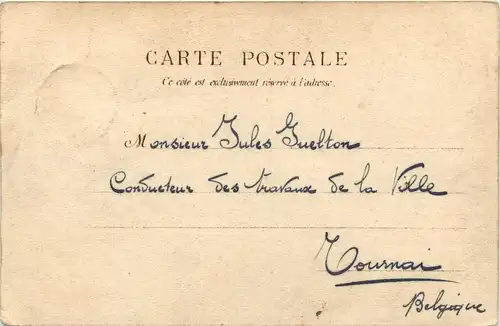 CARTE POSTALE
Ce côté est exclusivement réservé à l'adresse.
Monsieur Jules Guelton
Conducteur des travaux de la Ville
Tournai
Belgique